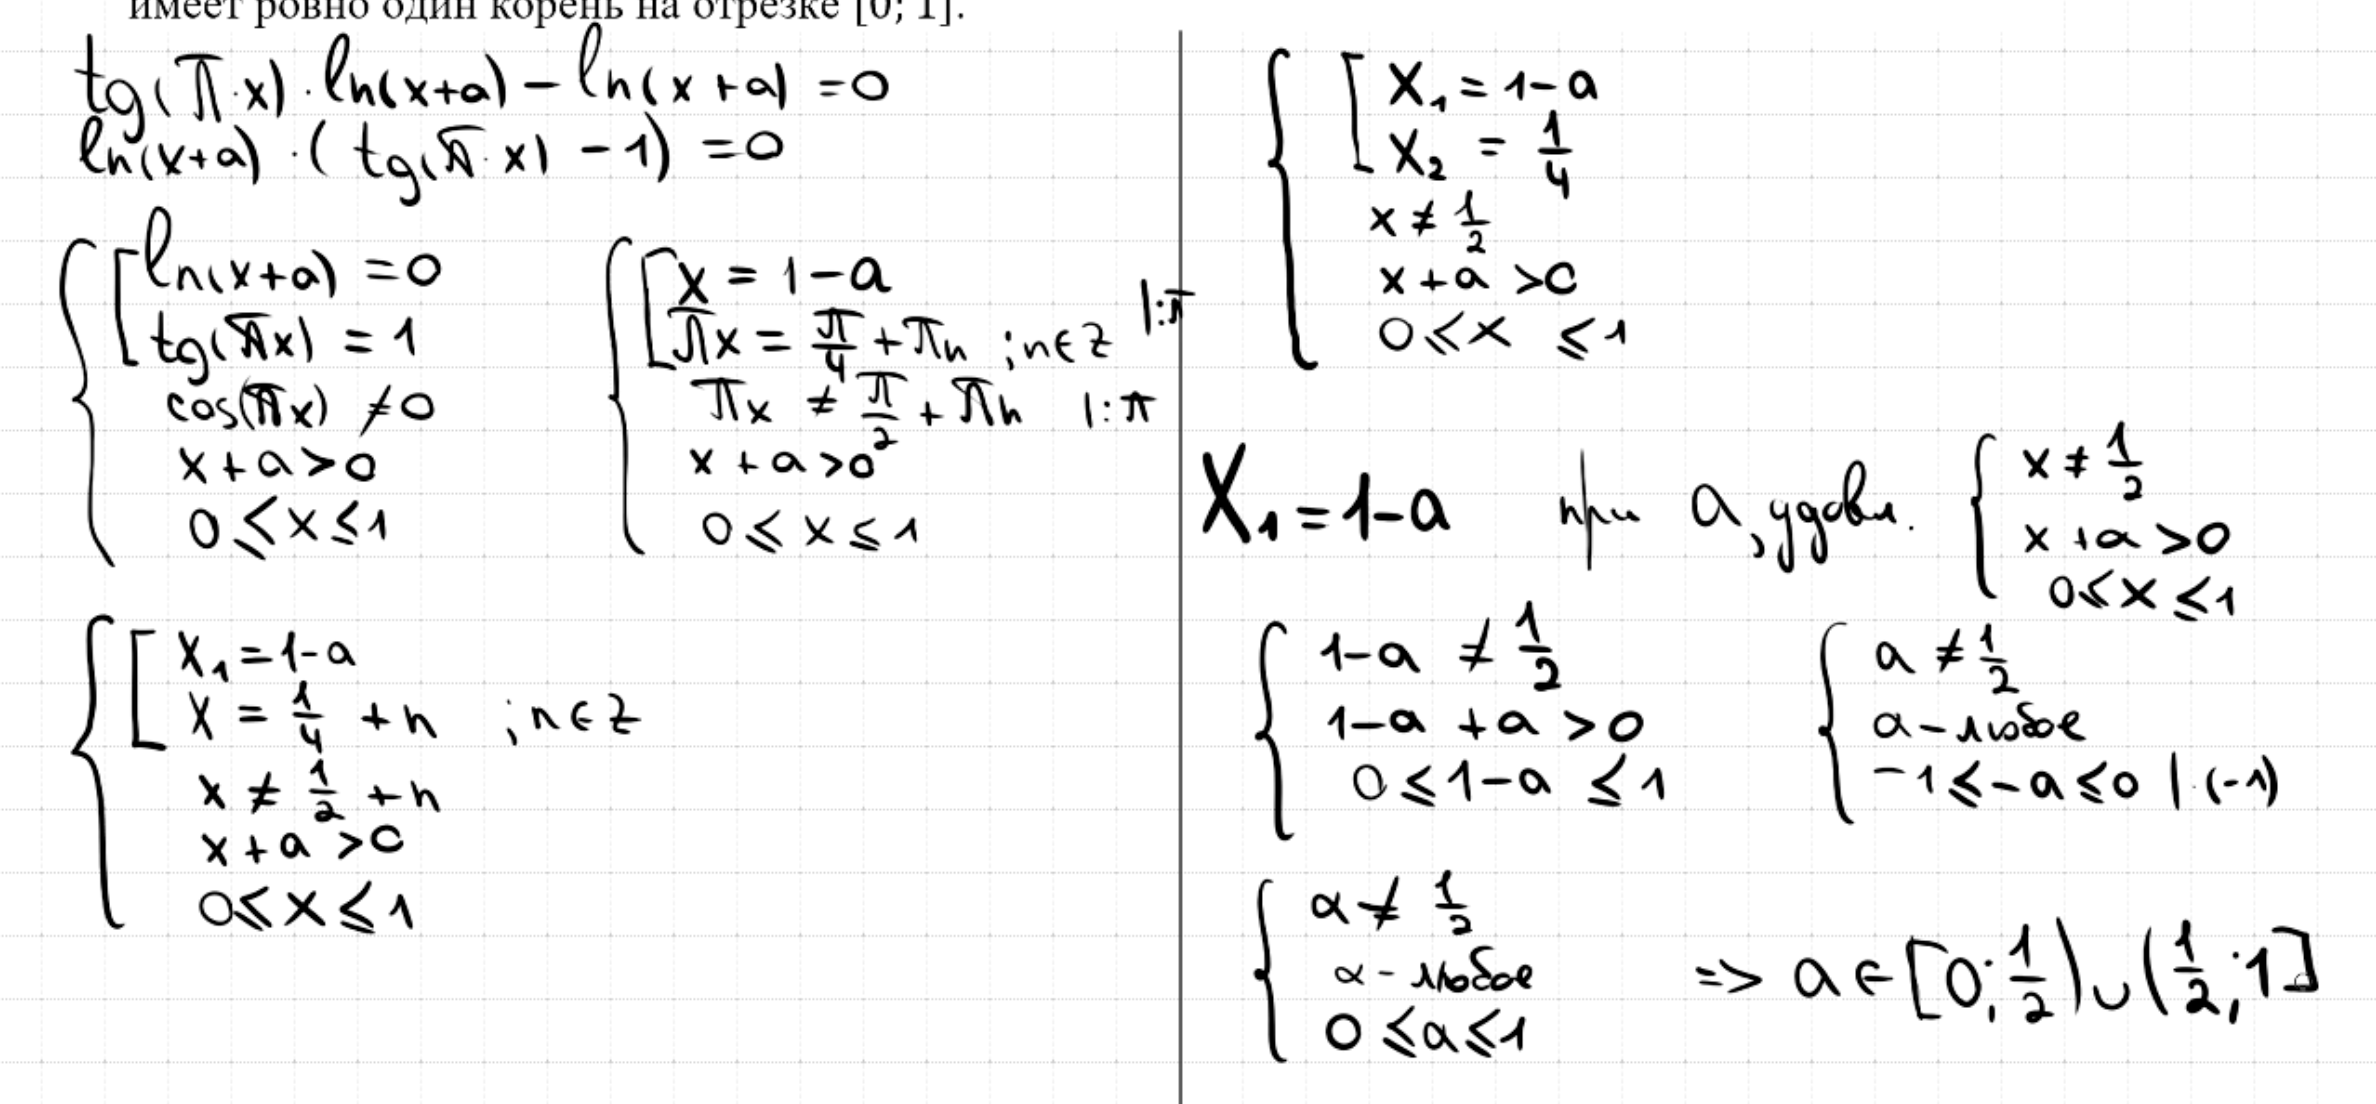 имеет ровно один корень на отрезке [0; 1].
tg(π·x)·ln(x+a) − ln(x+a) = 0
ln(x+a)·(tg(π·x) − 1) = 0
{ [ ln(x+a) = 0
tg(πx) = 1
cos(πx) ≠ 0
x + a > 0
0 ≤ x ≤ 1
{ [ x = 1 − a
πx = π/4 + πn ; n ∈ Z |:π
πx ≠ π/2 + πn |:π
x + a > 0
0 ≤ x ≤ 1
{ [ x₁ = 1 − a
x = 1/4 + n ; n ∈ Z
x ≠ 1/2 + n
x + a > 0
0 ≤ x ≤ 1
{ [ x₁ = 1 − a
x₂ = 1/4
x ≠ 1/2
x + a > 0
0 ≤ x ≤ 1
x₁ = 1 − a при a, удовл. { x ≠ 1/2
x + a > 0
0 ≤ x ≤ 1
{ 1 − a ≠ 1/2
1 − a + a > 0
0 ≤ 1 − a ≤ 1
{ a ≠ 1/2
a − любое
−1 ≤ −a ≤ 0 |·(−1)
{ a ≠ 1/2
a − любое
0 ≤ a ≤ 1
=> a ∈ [0; 1/2) ∪ (1/2; 1]